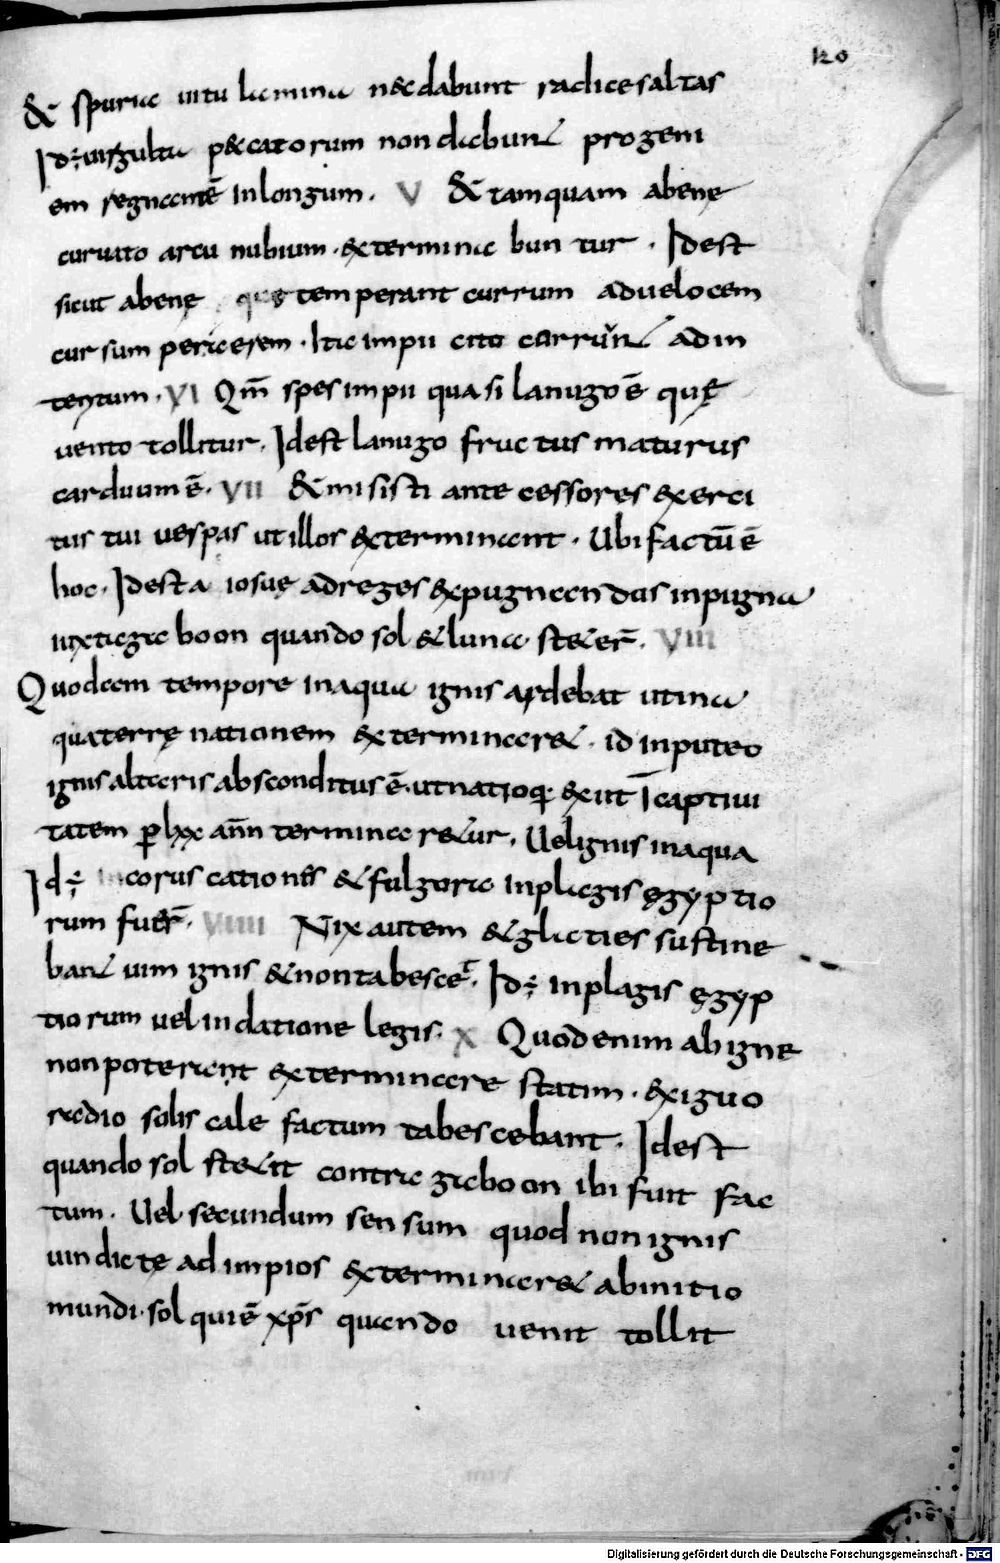 120
& spuria uitulamina n& dabunt radices altas
Id ÷ uirgulta p&catorum non dabunt progeni
em regnantē in longum. V & tamquam abenę
curuato arcu nubium. &terminabuntur. Idest
sicut abenę quę temperant currum ad uelocem
cursum peragerem. Ita impii cito currunt ad in
teritum. VI Qm̄ spes impii quasi lanugo ē quę
uento tollitur. Idest lanugo fructus maturus
carduum ē. VII & misisti antecessores exerci
tus tui uespas ut illos &terminent. Ubi factū ē
hoc. Idest a iosuę ad reges expugnandas in pugna
iuxta gaboon quando sol & luna steter̄. VIII
Quodam tempore in aqua ignis ardebat ut ini
qua terrę nationem &terminaret. id in puteo
ignis altaris absconditus ē. ut natioq; exiit ī captiui
tatem p lxx ann̄ terminaretur. Uel ignis in aqua
Id ÷ in coruscationes & fulgora in plagis ęgyptio
rum fuer̄. VIIII Nix autem & glaties sustine
bant uim ignis & non tabescer̄. Id ÷ in plagis ęgyp
tiorum uel in datione legis. X Quod enim ab igne
non poterant &terminare statim. exiguo
radio solis calefactum tabescebant. Idest
quando sol stetit contra gaboon ibi fuit fac
tum. Uel secundum sensum quod non ignis
uindictę ad impios &terminaret ab initio
mundi. sol qui ē xp̄s quando uenit tollit
Digitalisierung gefördert durch die Deutsche Forschungsgemeinschaft - DFG